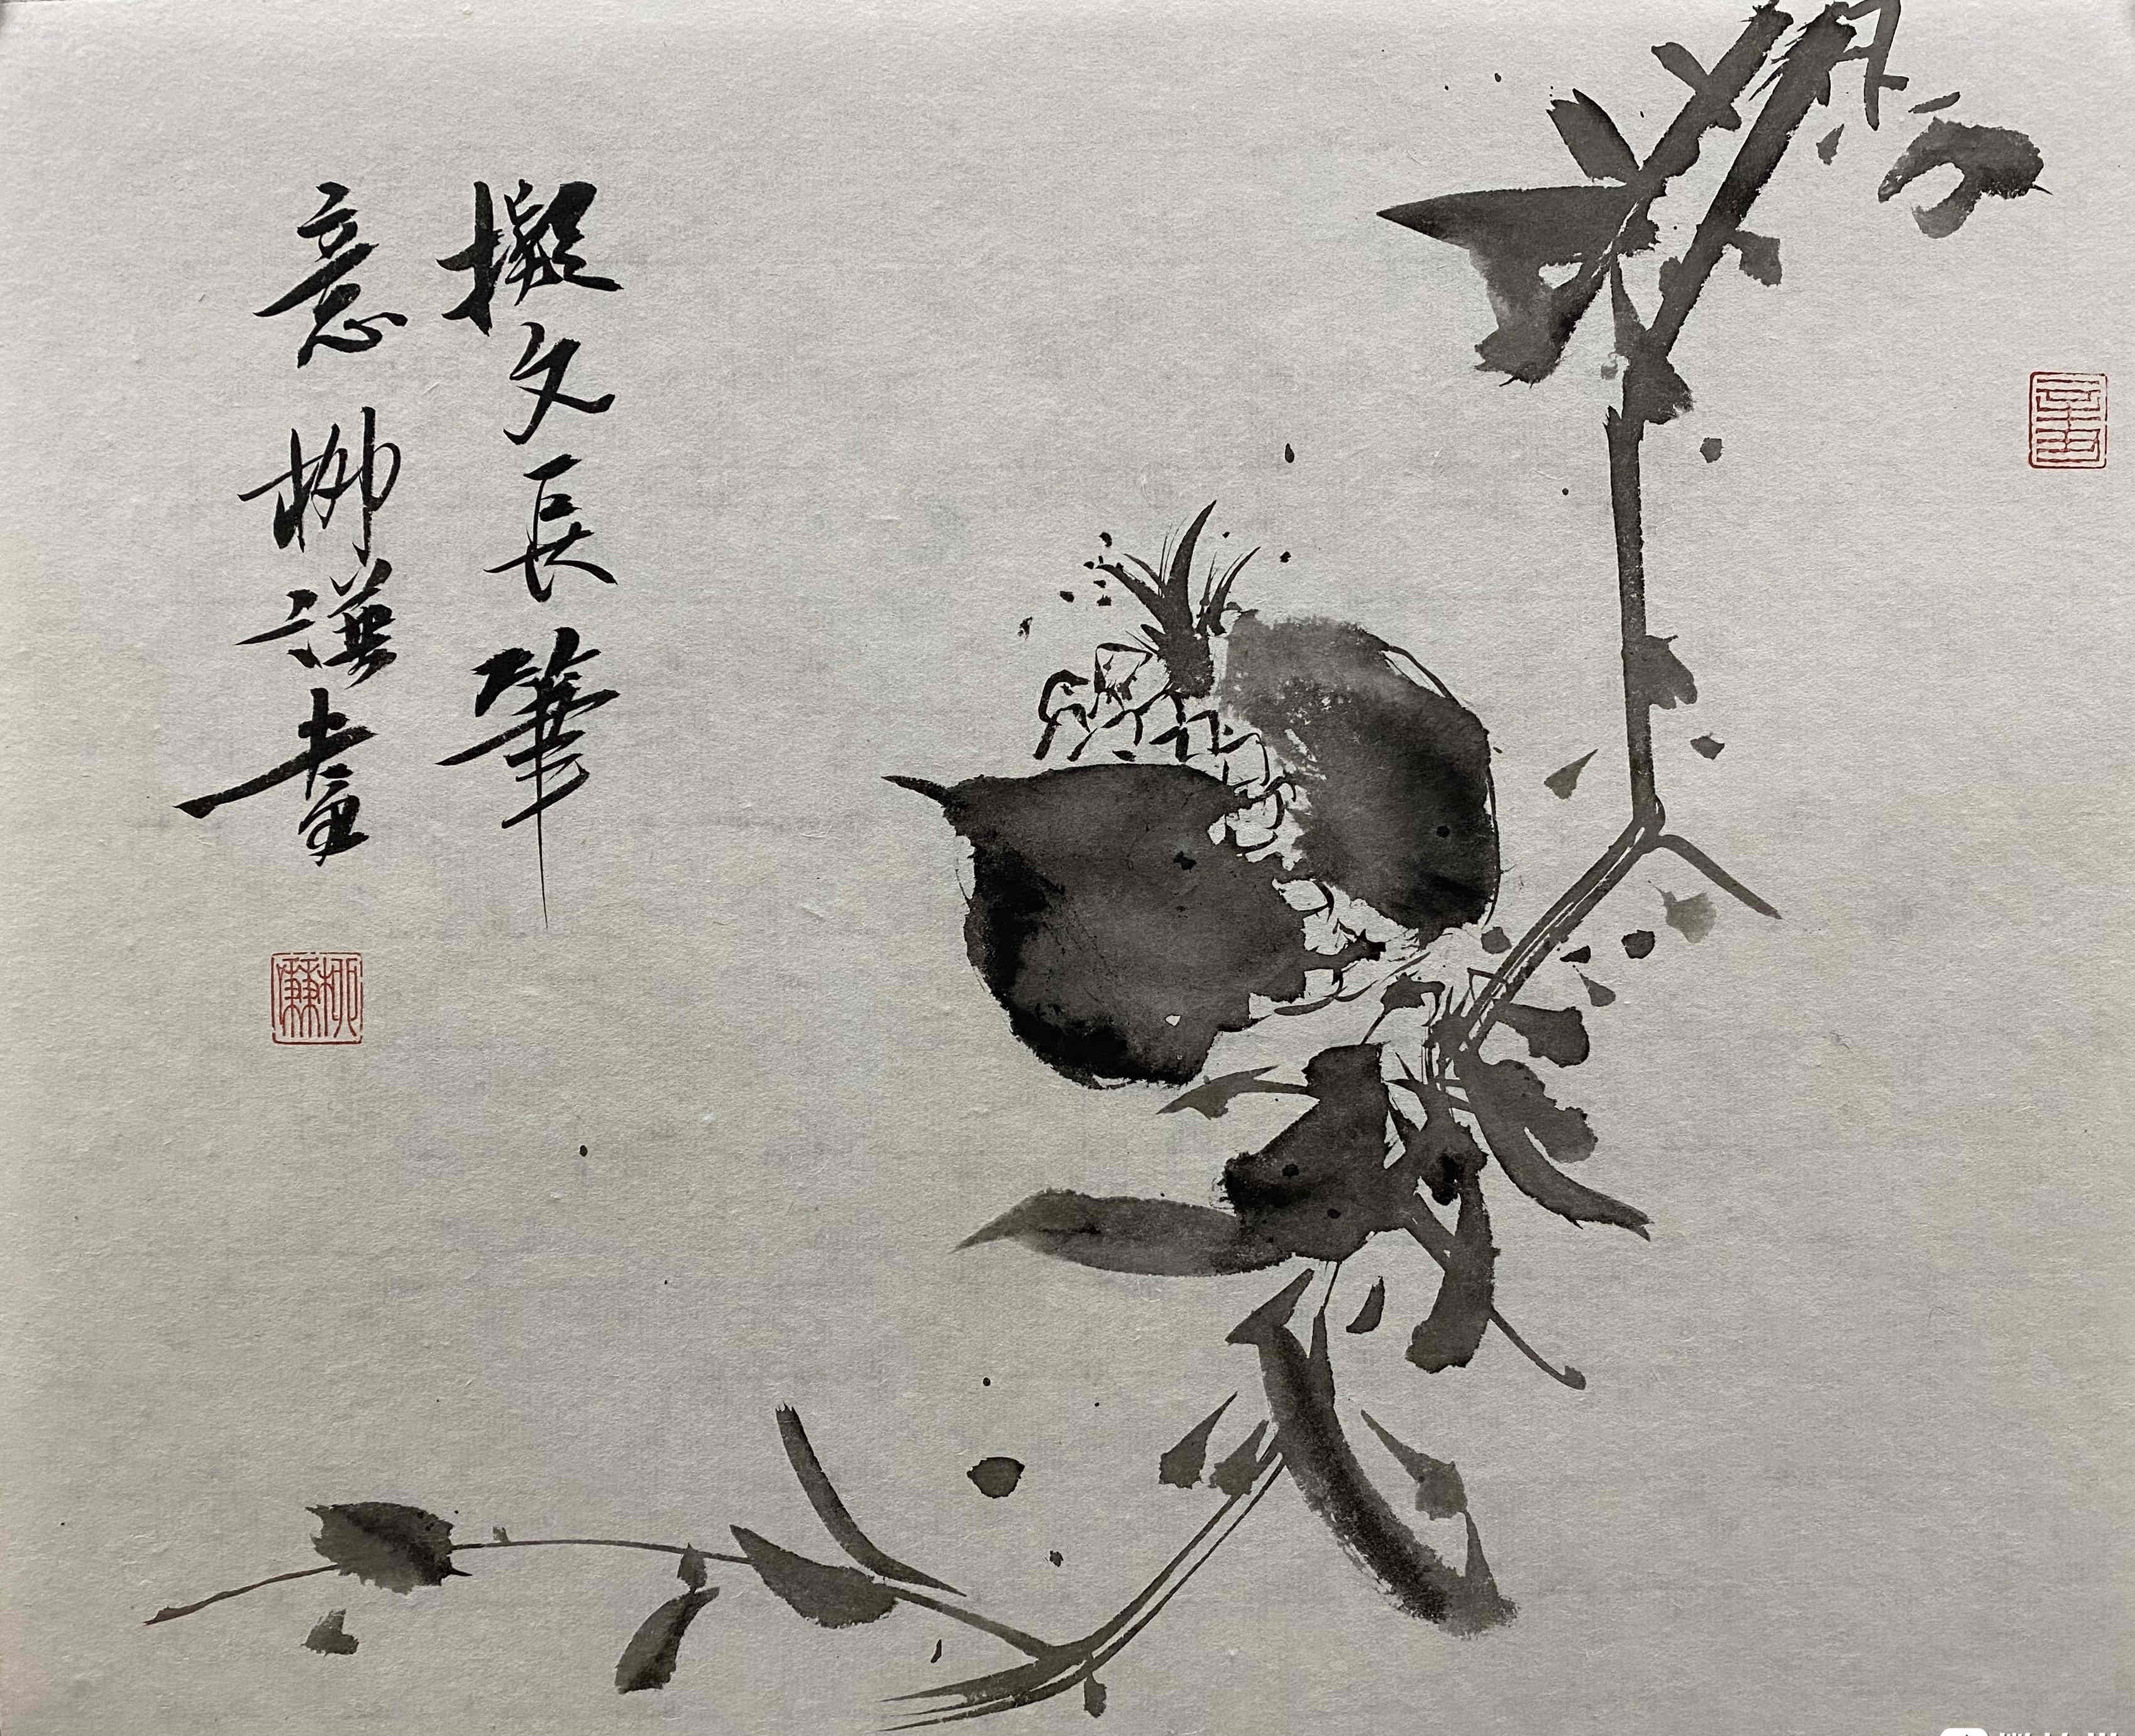 擬文長筆
意柳謙畫